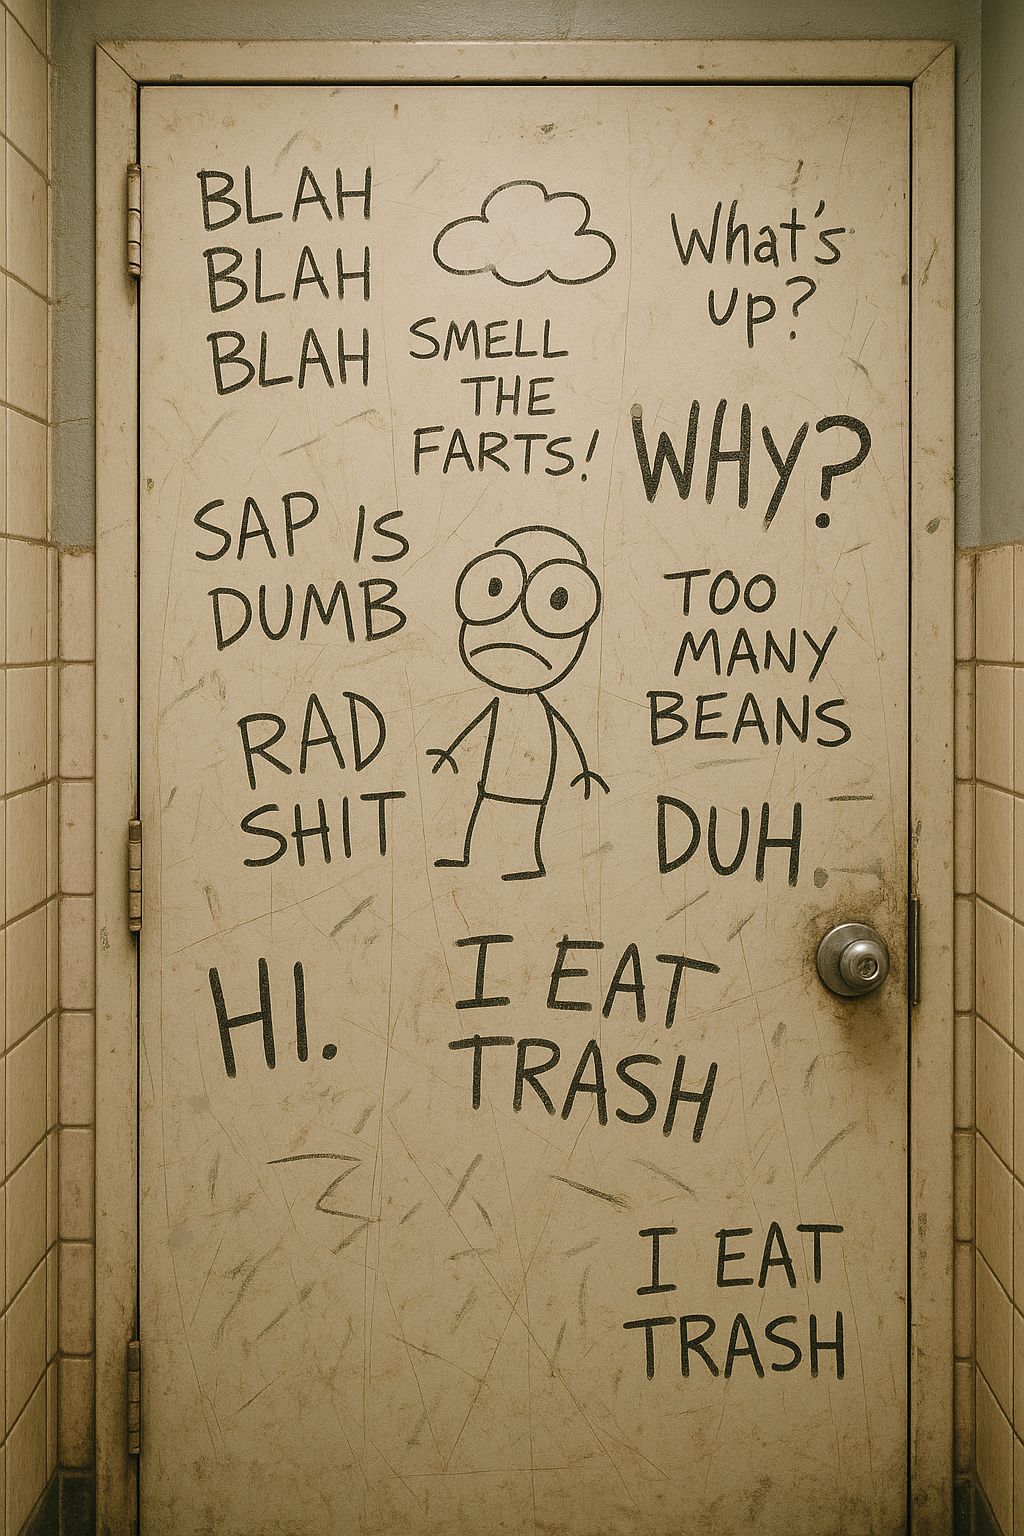 BLAH
BLAH
BLAH
SMELL
THE
FARTS!
What's
up?
WHY?
SAP IS
DUMB
TOO
MANY
BEANS
RAD
SHIT
DUH.
HI.
I EAT
TRASH
I EAT
TRASH